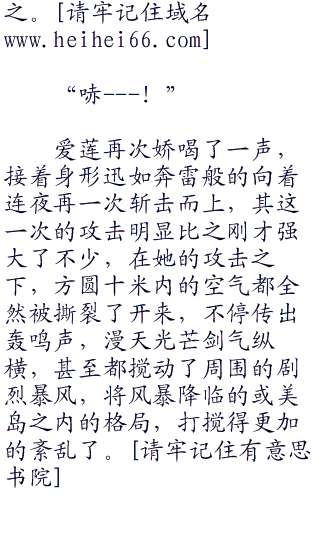 之。[请牢记住域名
www.heihei66.com]
“哧---！”
爱莲再次娇喝了一声，
接着身形迅如奔雷般的向着
连夜再一次斩击而上，其这
一次的攻击明显比之刚才强
大了不少，在她的攻击之
下，方圆十米内的空气都全
然被撕裂了开来，不停传出
轰鸣声，漫天光芒剑气纵
横，甚至都搅动了周围的剧
烈暴风，将风暴降临的或美
岛之内的格局，打搅得更加
的紊乱了。[请牢记住有意思
书院]